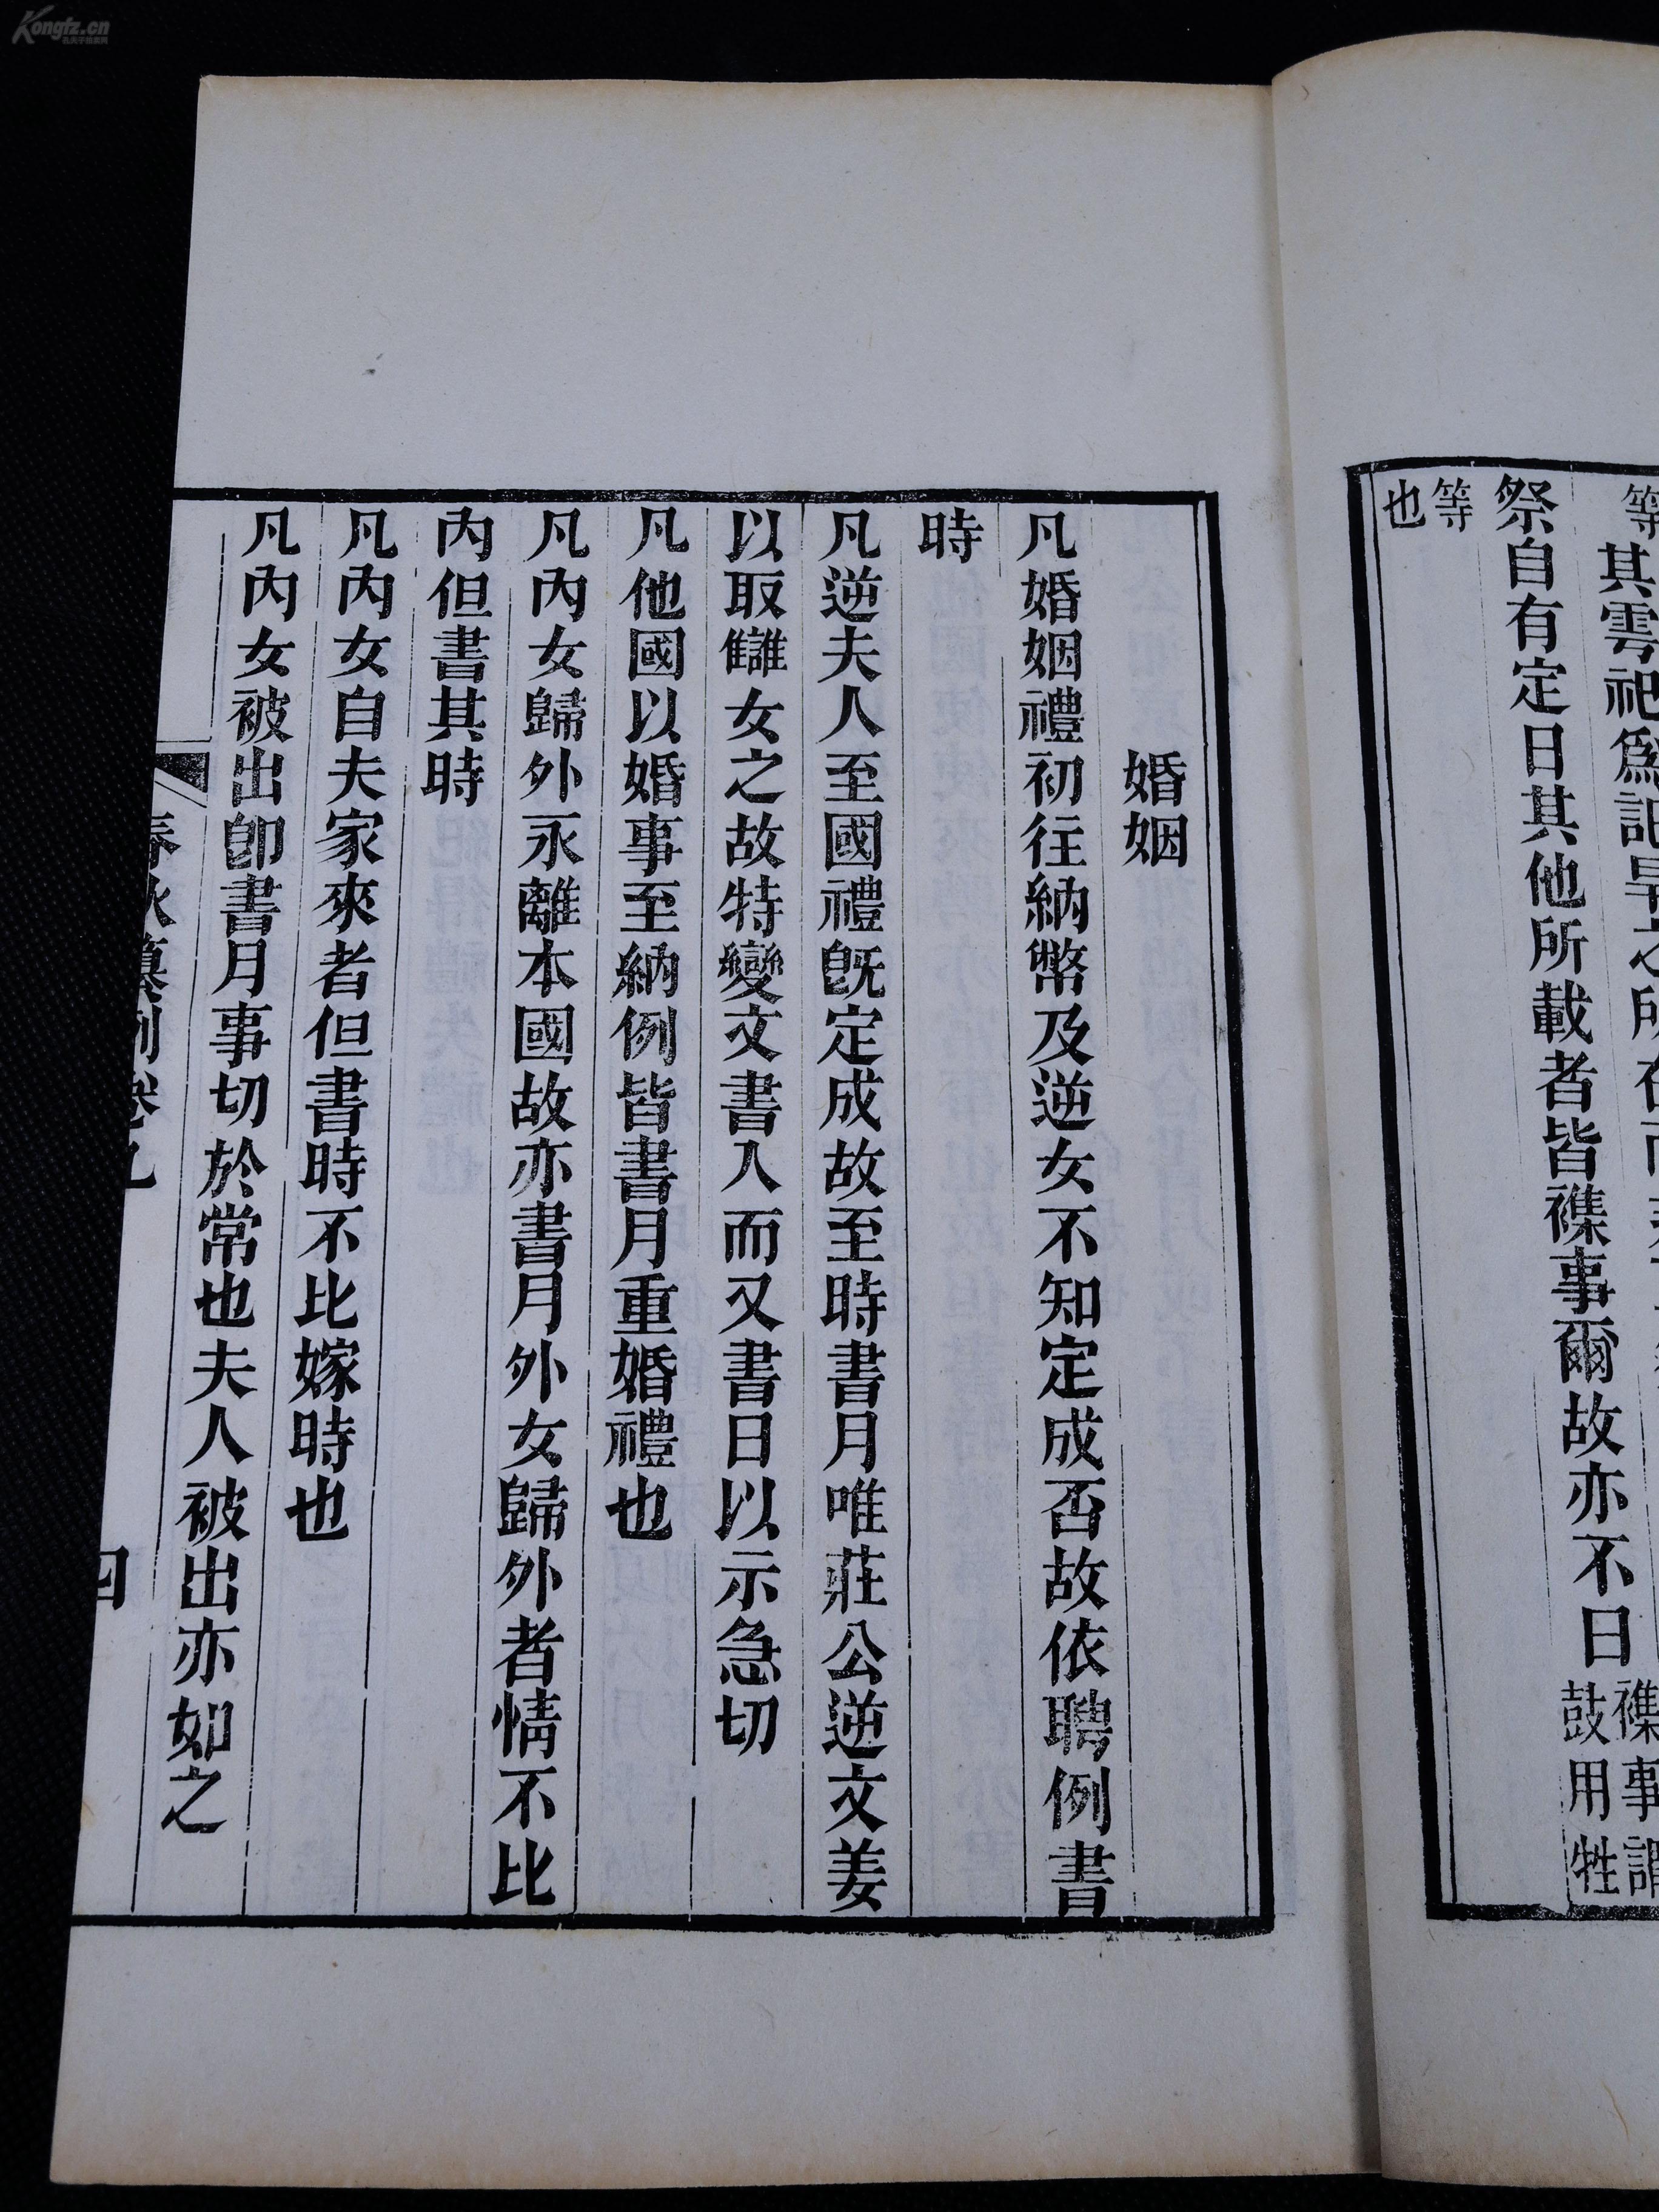 Kongfz.cn
孔夫子旧书网
其雩祀爲記旱之所在而
祭自有定日其他所載者皆襍事爾故亦不日襍事謂鼓用牲
等也
婚姻
凡婚姻禮初往納幣及逆女不知定成否故依聘例書
時
凡逆夫人至國禮旣定成故至時書月唯莊公逆文姜
以取讎女之故特變文書入而又書日以示急切
凡他國以婚事至納例皆書月重婚禮也
凡內女歸外永離本國故亦書月外女歸外者情不比
內但書其時
凡內女自夫家來者但書時不比嫁時也
凡內女被出卽書月事切於常也夫人被出亦如之
春秋纂例卷九
四